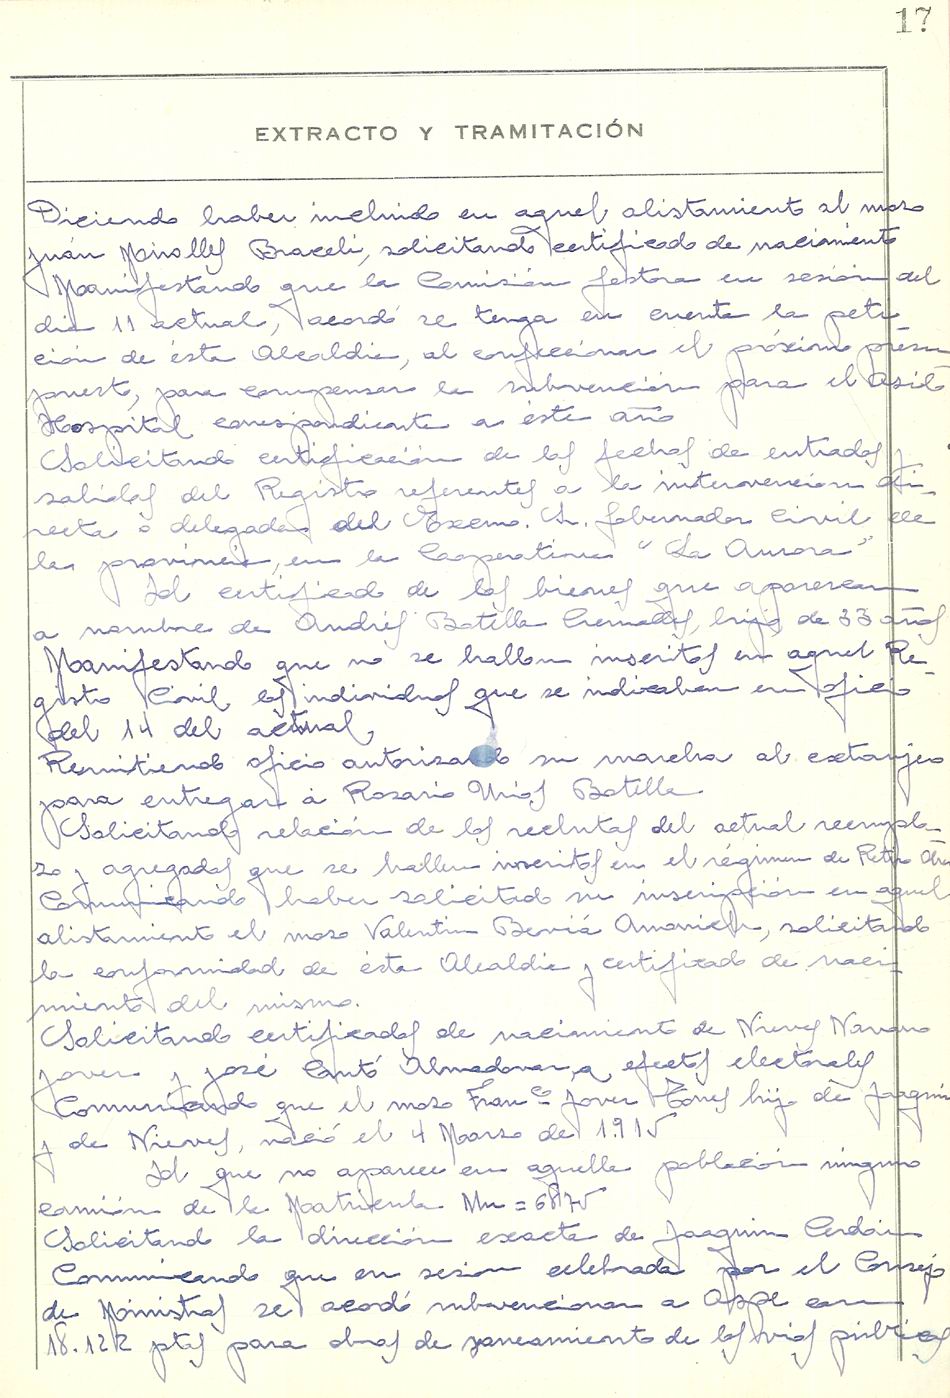 17
EXTRACTO Y TRAMITACIÓN
Diciendo haber incluido en aquel alistamiento al mozo
Juán Miralles Braceli, solicitando certificado de nacimiento
Manifestando que la Comisión gestora en sesión del
dia 11 actual, acordó se tenga en cuenta la peti-
ción de ésta Alcaldia, al confeccionar el próximo presu-
puesto, para compensar la subvención para el Asilo
Hospital correspondiente a éste año
Solicitando certificación de las fechas de entradas y
salidas del Registro referentes a la intervención di-
recta o delegada del Excmo. Sr. Gobernador Civil de
la provincia, en la Cooperativa "La Aurora"
Id certificado de los bienes que aparecen
a nombre de Andrés Botella Cremades, hijo de 33 años
Manifestando que no se hallan inscritos en aquel Re-
gistro Civil los individuos que se indicaban en oficio
del 14 del actual,
Remitiendo oficio autorizado su marcha al extranjero
para entregar a Rosario Mira Botella
Solicitando relación de los reclutas del actual reempla-
zo y agregados que se hallen inscritos en el régimen de Retiro
Comunicando haber solicitado su inscripción en aquel
alistamiento el mozo Valentin Beviá, solicitando
la conformidad de ésta Alcaldia y certificado de naci-
miento del mismo.
Solicitando certificados de nacimiento de Nieves Navarro
Jover y José Cantó Almodovar, a efectos electorales
Comunicando que el mozo Franco Jover Torres hijo de Joaquin
y de Nieves, nació el 4 Marzo de 1915
Id que no aparece en aquella población ninguno
camión de la Matricula Mu = 6875
Solicitando la dirección exacta de Joaquin Cerdán
Comunicando que en sesion celebrada por el Consejo
de Ministros se acordó subvencionar a Aspe con
18.122 ptas para obras de saneamiento de las vias públicas